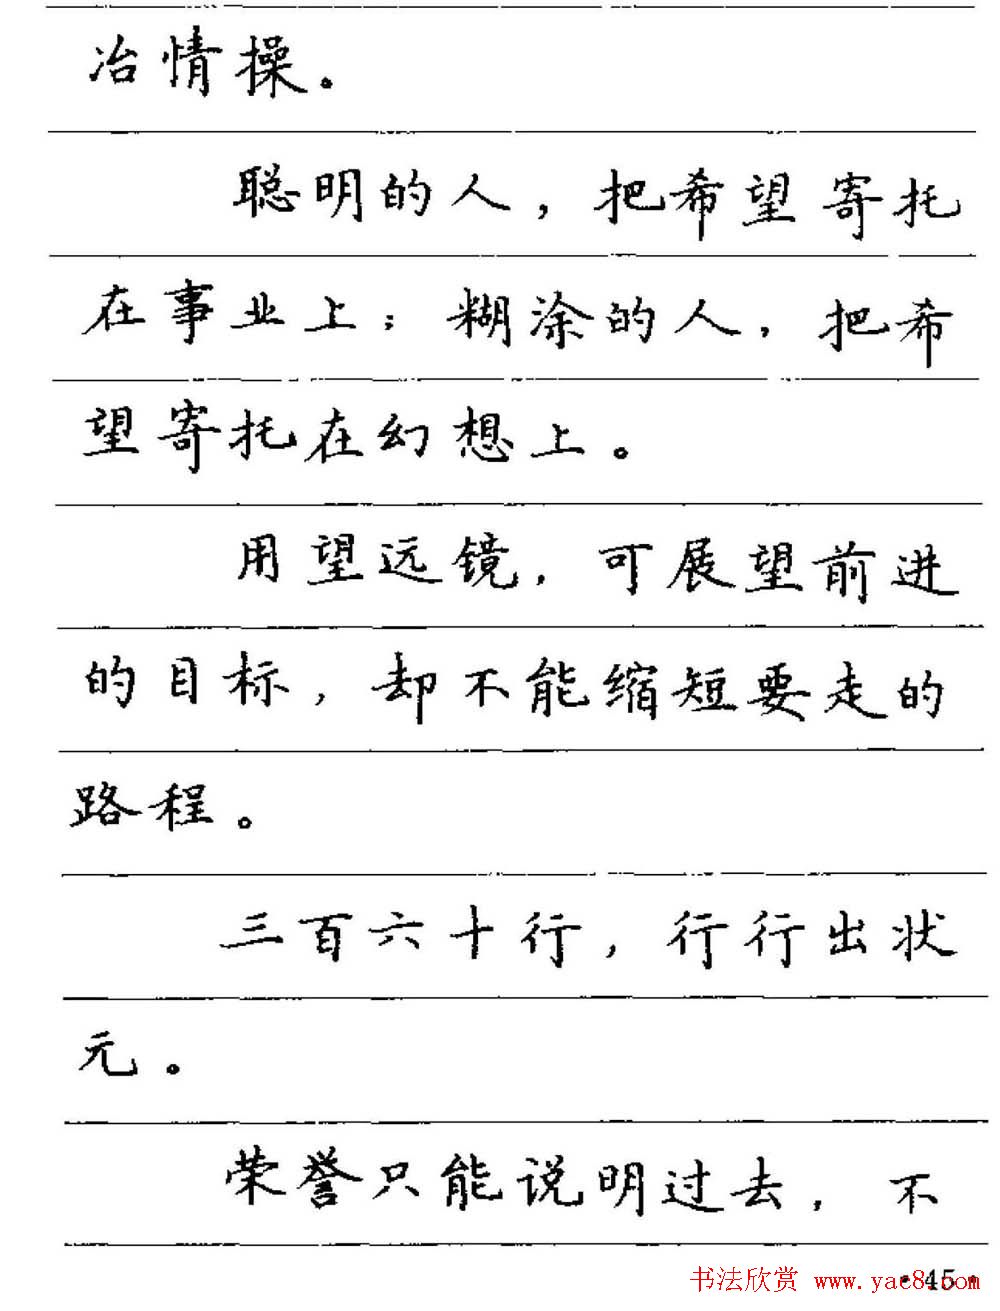 冶情操。
聪明的人，把希望寄托
在事业上；糊涂的人，把希
望寄托在幻想上。
用望远镜，可展望前进
的目标，却不能缩短要走的
路程。
三百六十行，行行出状
元。
荣誉只能说明过去，不
·45·
书法欣赏 www.yac8.com